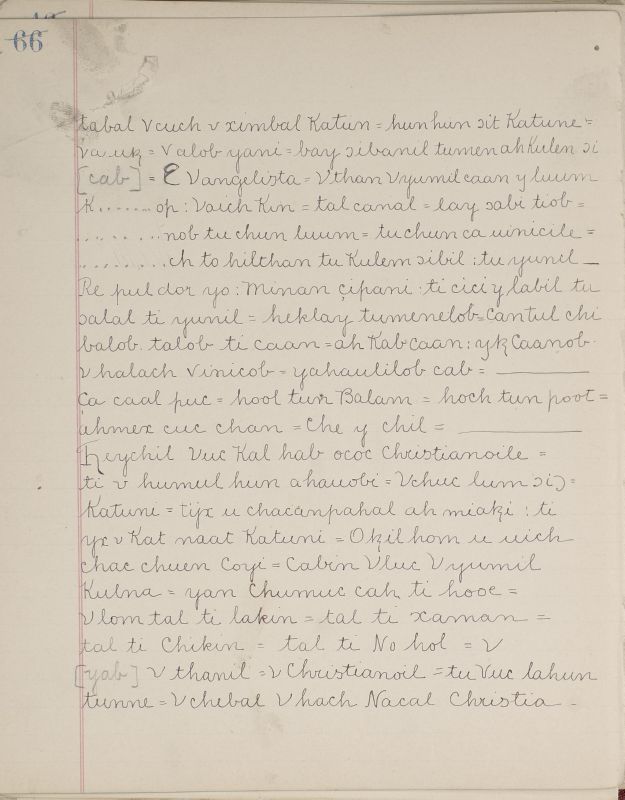 66
tabal v cuch v ximbal Katun = hun hun ɔit Katune =
va.uꜩ = v alob yani = bay ɔibanil tumen ah Kulen ɔi
[cab] = E Vangelista = V than V yumil caan y luum
K....... op : Vaich Kin = tal canal = lay ɔabi tiob =
........nob tu chun luum = tu chun ca uinicile =
........ch to hilthan tu Kulem ɔibil : tu yunil —
Re pul dor yo : minan çipani : ti cici y labil tu
ɔalal ti yunil = heklay tumenelob = cantul chi
balob. talob ti caan = ah Kab caan : yꜩ Caanob.
v halach vinicob = yahaulilob cab = ———
Ca caal puc = hool tun Balam = hoch tun poot =
ahmex cuc chan = Che y chil = ———
Heychil Vuc Kal hab ococ Christianoile =
ti v humul hun ahauobi = Vchuc lum ɔiɔ =
Katuni = tijx u chacanpahal ah miatzi : ti
yx v Kat naat Katuni = Oꜩil hom u uich
chac chuen Coyi = Cabin Vluc V yumil
Kulna = yan Chumuc cah ti hooe =
v lom tal ti lakin = tal ti xaman =
tal ti Chikin = tal ti No hol = v
[yab] v thanil = v Christianoil = tu Vuc lahun
tunne = V chebal V hach Nacal Christia -